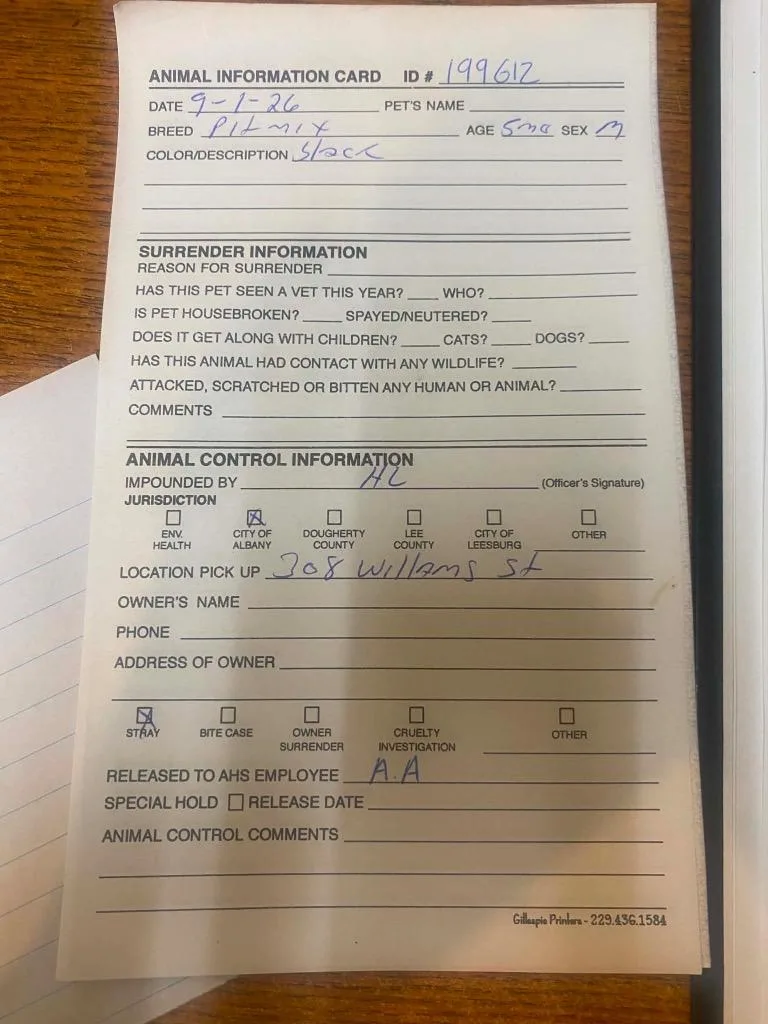 ANIMAL INFORMATION CARD ID # 199612
DATE 9-1-26 PET'S NAME
BREED Pit mix AGE 5mo SEX M
COLOR/DESCRIPTION black
SURRENDER INFORMATION
REASON FOR SURRENDER
HAS THIS PET SEEN A VET THIS YEAR? WHO?
IS PET HOUSEBROKEN? SPAYED/NEUTERED?
DOES IT GET ALONG WITH CHILDREN? CATS? DOGS?
HAS THIS ANIMAL HAD CONTACT WITH ANY WILDLIFE?
ATTACKED, SCRATCHED OR BITTEN ANY HUMAN OR ANIMAL?
COMMENTS
ANIMAL CONTROL INFORMATION
IMPOUNDED BY HL (Officer's Signature)
JURISDICTION
ENV. HEALTH CITY OF ALBANY DOUGHERTY COUNTY LEE COUNTY CITY OF LEESBURG OTHER
LOCATION PICK UP 308 Willams St
OWNER'S NAME
PHONE
ADDRESS OF OWNER
STRAY BITE CASE OWNER SURRENDER CRUELTY INVESTIGATION OTHER
RELEASED TO AHS EMPLOYEE A.A
SPECIAL HOLD RELEASE DATE
ANIMAL CONTROL COMMENTS
Gillespie Printers - 229.436.1584